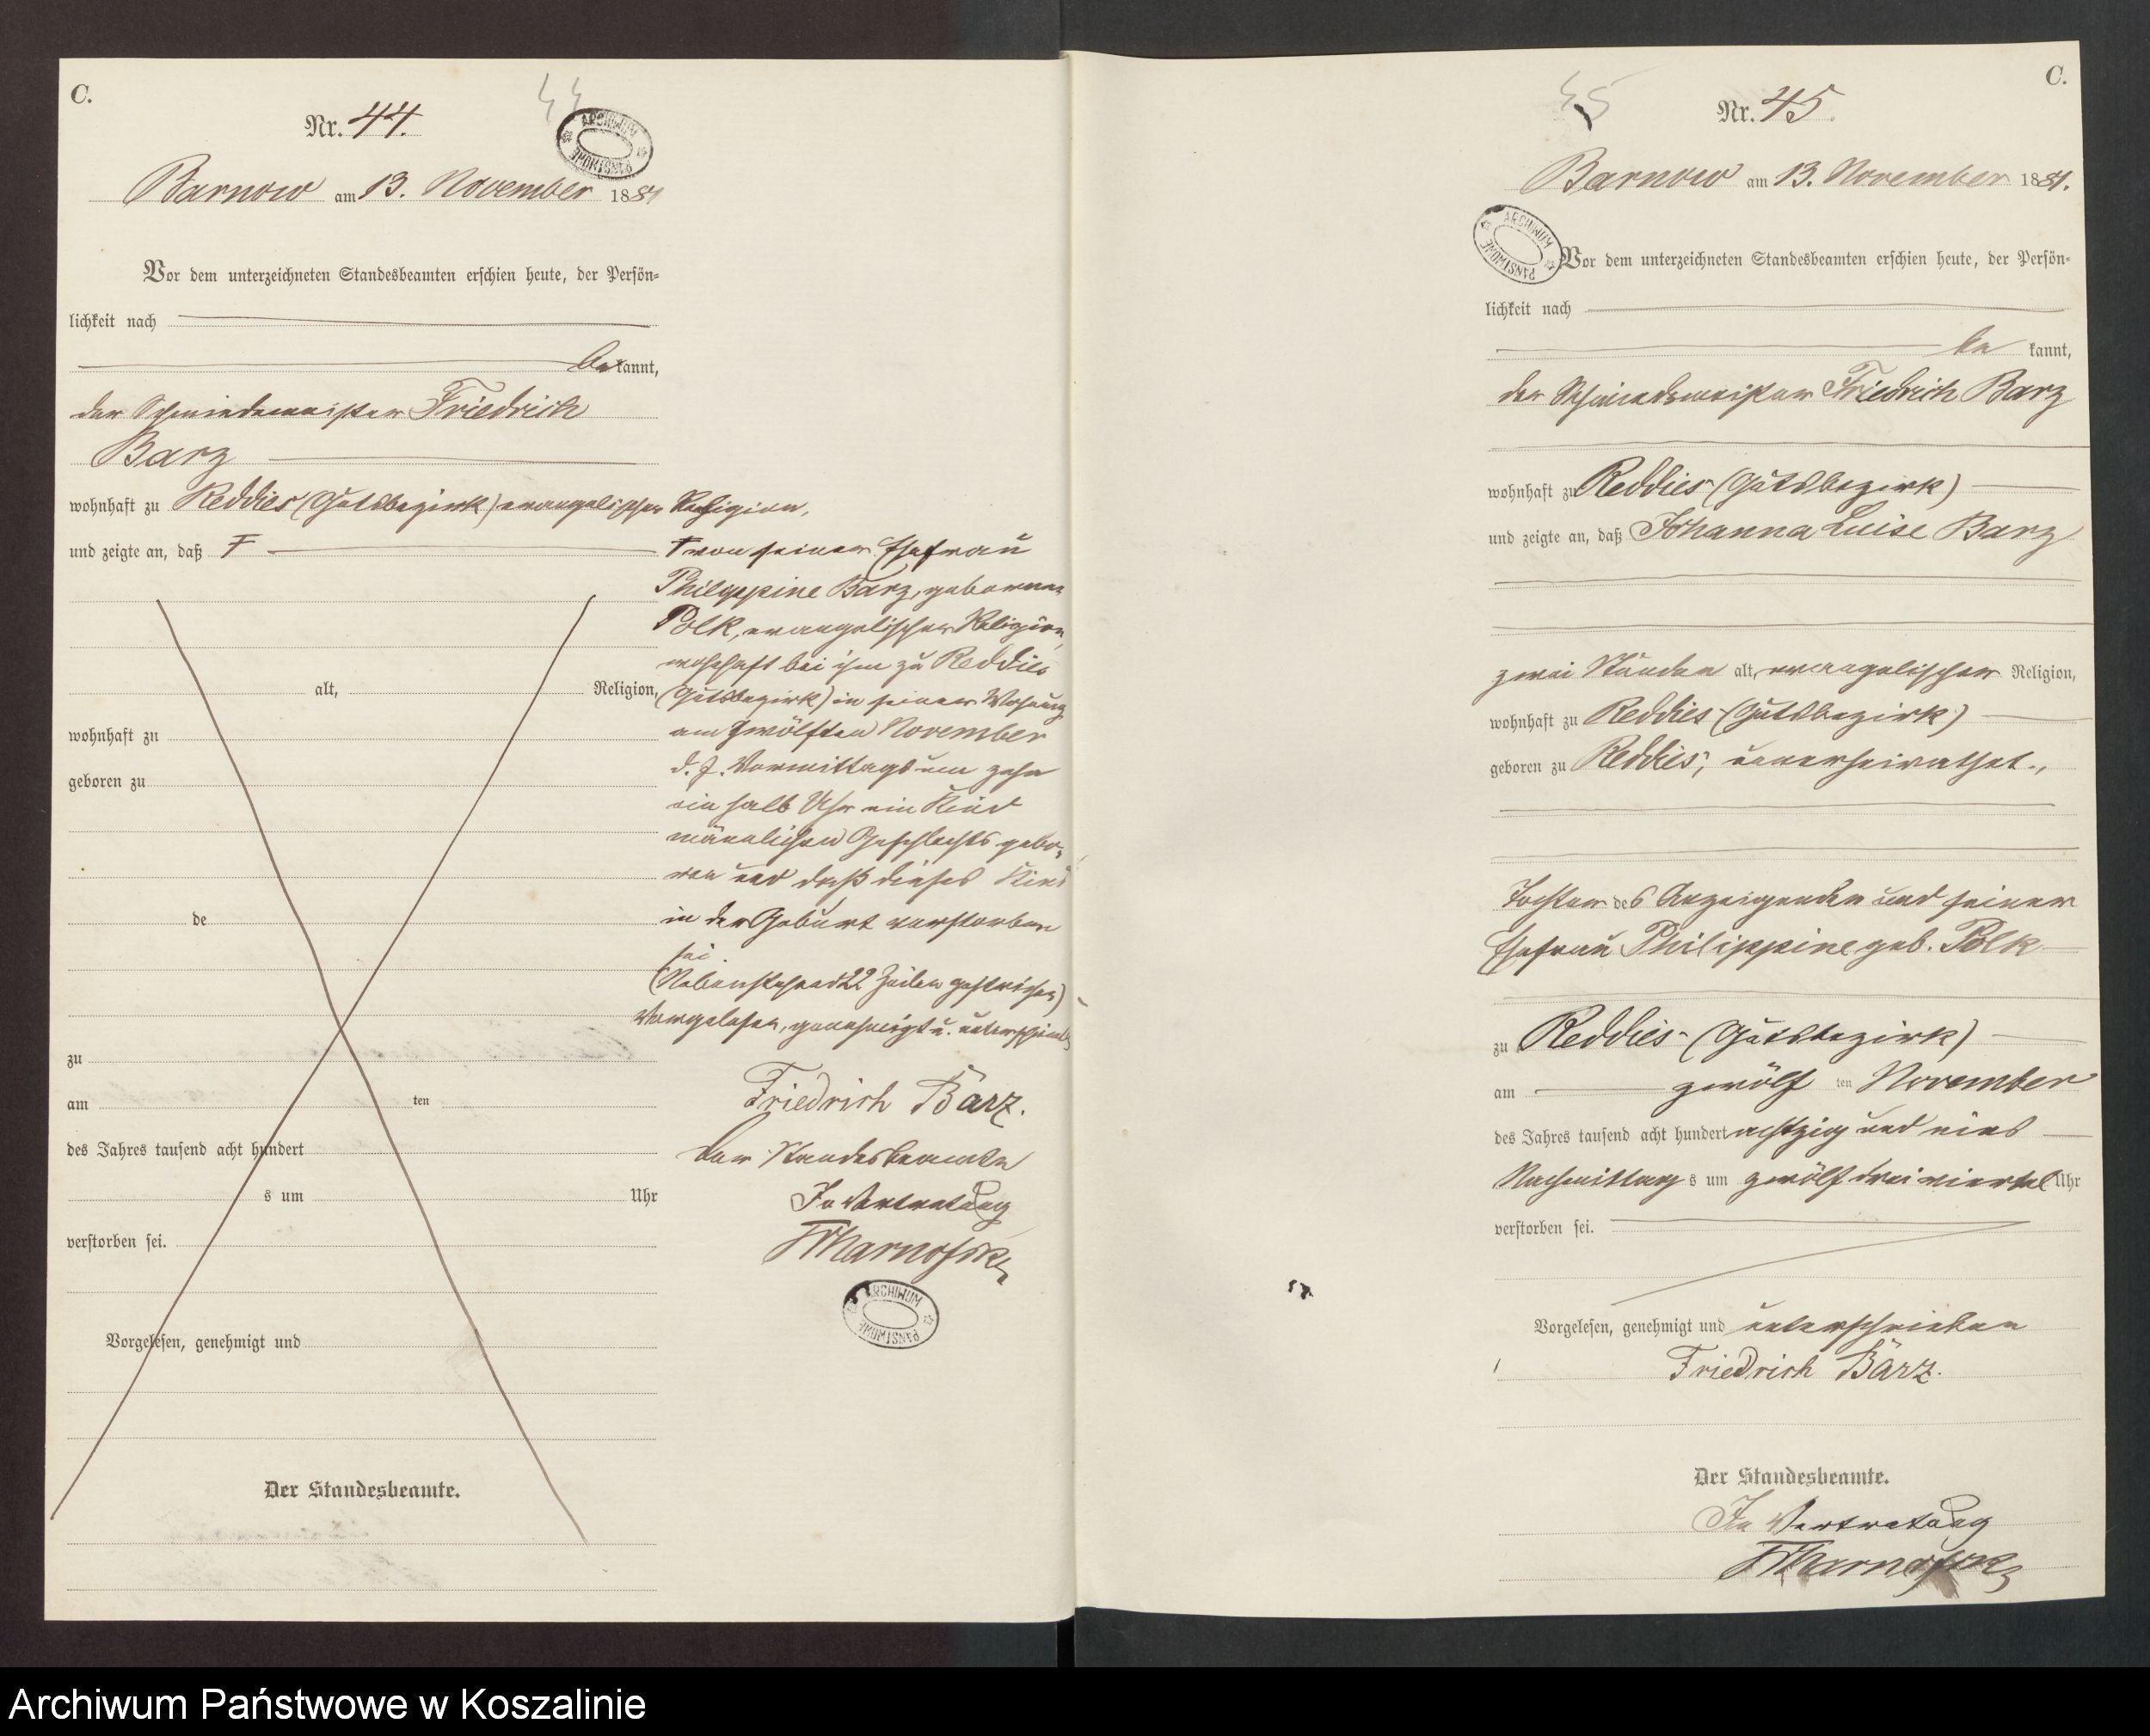 C.
44
Nr. 44.
ARCHIWUM PAŃSTWOWE
Barnow am 13. November 1881
Vor dem unterzeichneten Standesbeamten erschien heute, der Persön-
lichkeit nach
bekannt,
der Schmiedemeister Friedrich
Barz
wohnhaft zu Reddies (Gutsbezirk) evangelischer Religion,
und zeigte an, daß F
F von seiner Ehefrau
Philippine Barz, geborenen
Polk, evangelischer Religion
wohnhaft bei ihm zu Reddies
(Gutsbezirk) in seiner Wohnung
am zwölften November
d. J. Vormittags um zehn
ein halb Uhr ein Kind
männlichen Geschlechts gebo-
ren und daß dieses Kind
in der Geburt verstorben
sei.
(Nebenstehend 22 Zeilen gestrichen)
Vorgelesen, genehmigt u. unterschrieben
Friedrich Barz.
Der Standesbeamte
In Vertretung
ARCHIWUM PAŃSTWOWE
alt, Religion,
wohnhaft zu
geboren zu
de
zu
am ten
des Jahres tausend acht hundert
s um Uhr
verstorben sei.
Vorgelesen, genehmigt und
Der Standesbeamte.
C.
45
Nr. 45.
Barnow am 13. November 1881.
ARCHIWUM PAŃSTWOWE
Vor dem unterzeichneten Standesbeamten erschien heute, der Persön-
lichkeit nach
bekannt,
der Schmiedemeister Friedrich Barz
wohnhaft zu Reddies (Gutsbezirk)
und zeigte an, daß Johanna Luise Barz
zwei Stunden alt, evangelischer Religion,
wohnhaft zu Reddies (Gutsbezirk)
geboren zu Reddies, unverheirathet.,
Tochter des Anzeigenden und seiner
Ehefrau Philippine geb. Polk
zu Reddies (Gutsbezirk)
am zwölf ten November
des Jahres tausend acht hundert achtzig und eins
Nachmittags um zwölf drei viertel Uhr
verstorben sei.
Vorgelesen, genehmigt und unterschrieben
Friedrich Barz.
Der Standesbeamte.
In Vertretung
Archiwum Państwowe w Koszalinie